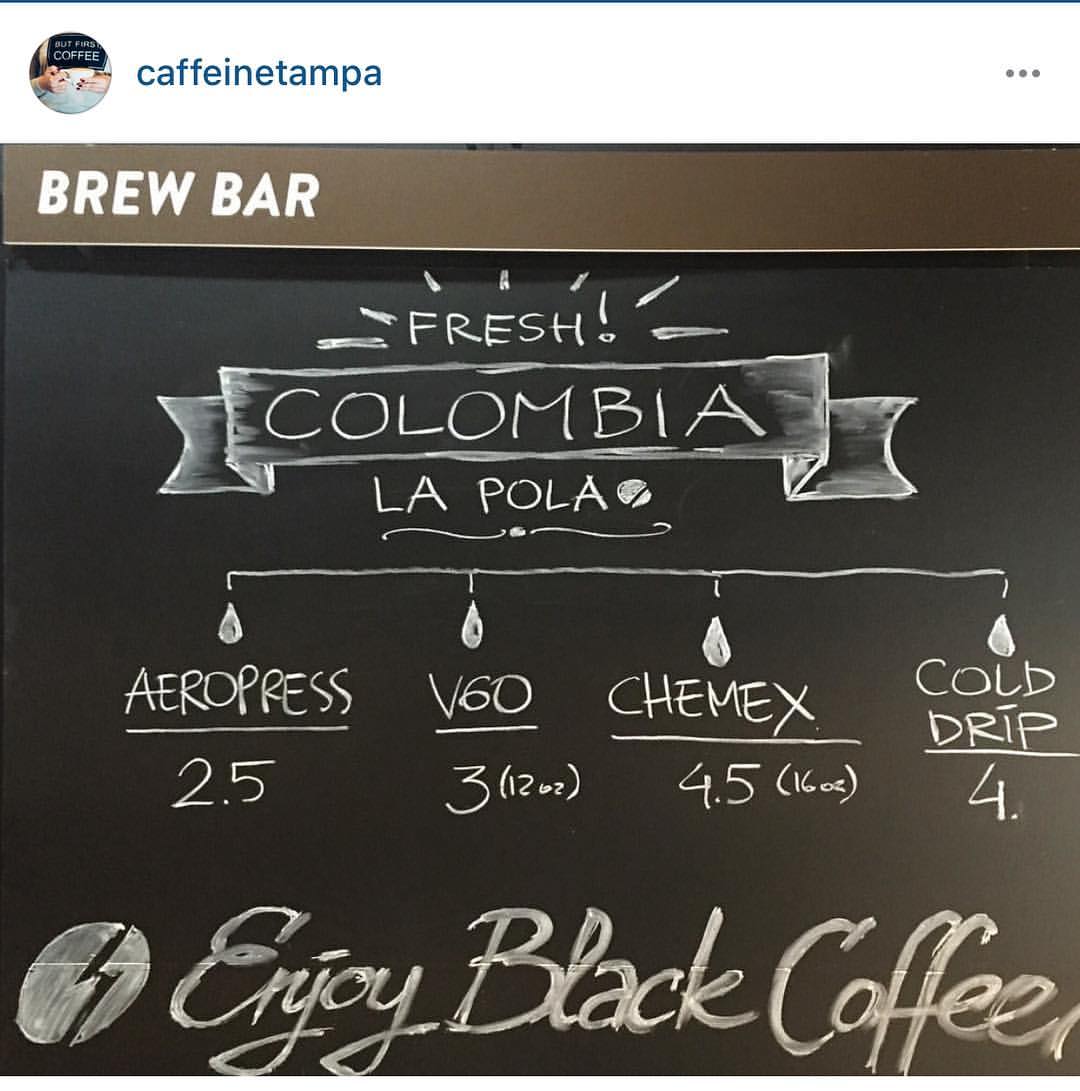 BUT FIRST
COFFEE
caffeinetampa
BREW BAR
FRESH!
COLOMBIA
LA POLA
AEROPRESS
V60
CHEMEX
COLD
DRIP
2.5
3 (12 oz)
4.5 (16 oz)
4.
Enjoy Black Coffee